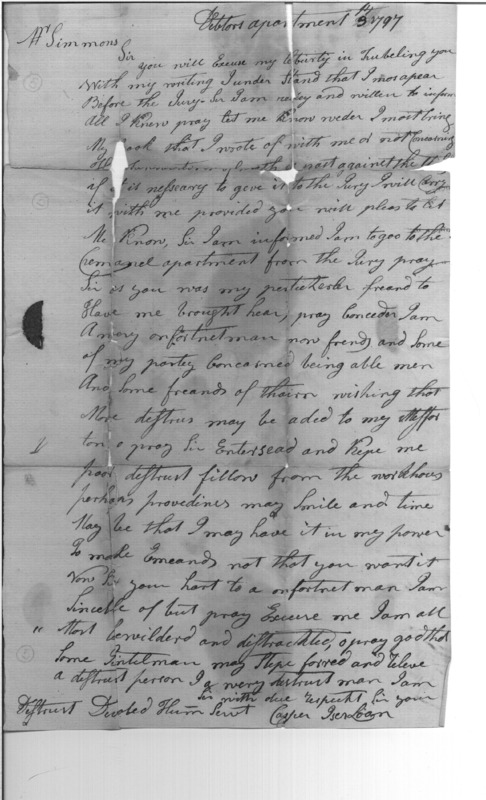 Debtors apartment 3th 1797
Mr Simmons
Sir
you will Excuse my liburty in Trubeling you
With my writing I under Stand that I mos apear
Before the Jury Sir I am redey and willen to inform
All I Know pray let me Know weder I most bring
My Book that I wrote of with me or not Concarning
most against the
if it is nesseary to geve it to the Jury I will Cary
it with me provided you will pleas to let
Me Know, Sir I am informed I am to goo to the
Cremanel apartment from the Jury pray
Sir as you was my pertickeler freand to
Have me brought hear, pray Conceder I am
A mory onfortnet man now frends and Some
of my partey Concarned being able men
And Some freands of thairn wishing that
More distrus may be aded to my Messfor
ton o pray Sir Entersead and Kepe me
poor distrust fillow from the workhous
perhaps provedines may Smile and time
May be that I may have it in my power
To make Emeands not that you want it
Now Sir your hart to a onfortnet man I am
Sinceble of but pray Excuse me I am all
Most bewilderd and distrackted, o pray god that
Some Jintelman may Stepe forred and releve
a distrust person I a very distrust man I am
Sir with due respects Sir your
Distrust Divoted Hum Servt Casper